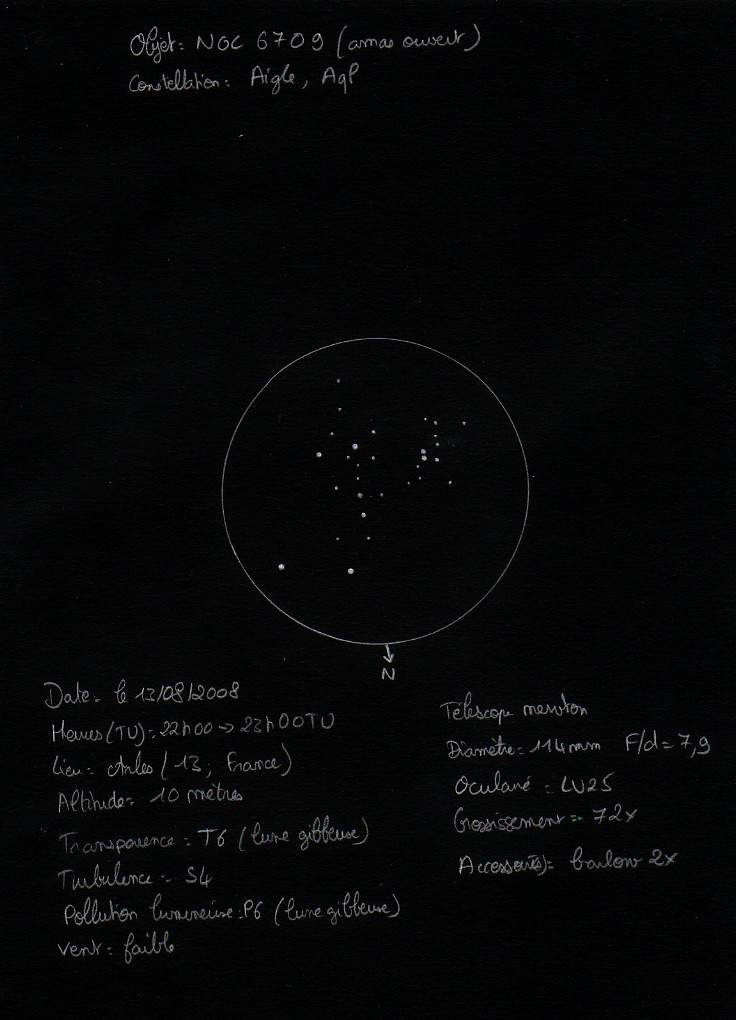 Objet: NGC 6709 (amas ouvert)
Constellation: Aigle, Aql
N
Date: le 13/08/2008
Heures (TU): 22h00 → 23h00TU
Lieu: Arles (13, France)
Altitude: 10 mètres
Transparence: T6 (lune gibbeuse)
Turbulence: S4
Pollution lumineuse: P6 (lune gibbeuse)
Vent: faible
Télescope newton
Diamètre: 114mm F/d=7,9
Oculaire: LV25
Grossissement: 72x
Accessoire(s): barlow 2x